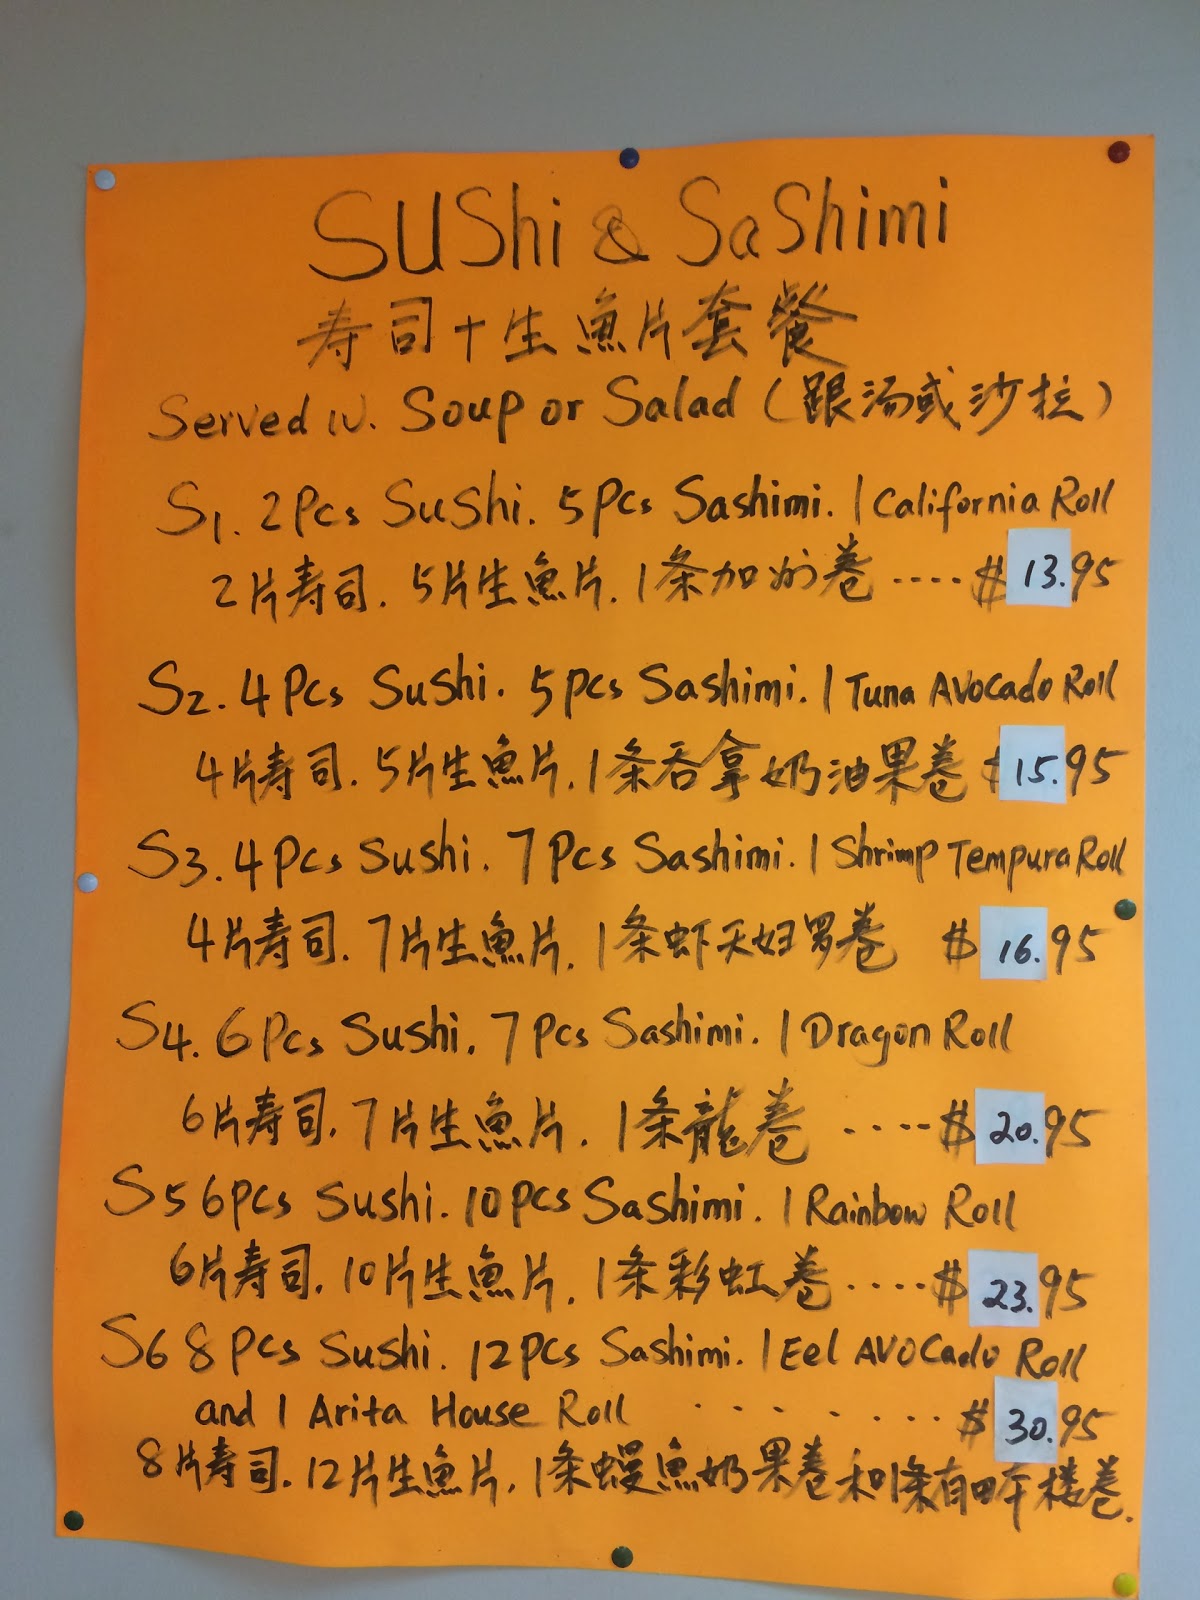 Sushi & Sashimi
寿司+生魚片套餐
Served w. Soup or Salad (跟汤或沙拉)
S1. 2Pcs Sushi. 5pcs Sashimi. 1 California Roll
2片寿司. 5片生魚片. 1条加州卷 .... $13.95
S2. 4Pcs Sushi. 5pcs Sashimi. 1 Tuna Avocado Roll
4片寿司. 5片生魚片. 1条吞拿奶油果卷 $15.95
S3. 4pcs Sushi. 7pcs Sashimi. 1 Shrimp Tempura Roll
4片寿司. 7片生魚片. 1条虾天妇罗卷 $16.95
S4. 6Pcs Sushi. 7pcs Sashimi. 1 Dragon Roll
6片寿司. 7片生魚片. 1条龍卷 .... $20.95
S5 6pcs Sushi. 10pcs Sashimi. 1 Rainbow Roll
6片寿司. 10片生魚片. 1条彩虹卷 .... $23.95
S6 8pcs Sushi. 12pcs Sashimi. 1 Eel Avocado Roll
and 1 Arita House Roll ........ $30.95
8片寿司. 12片生魚片. 1条鳗魚奶果卷和1条有田楼卷.